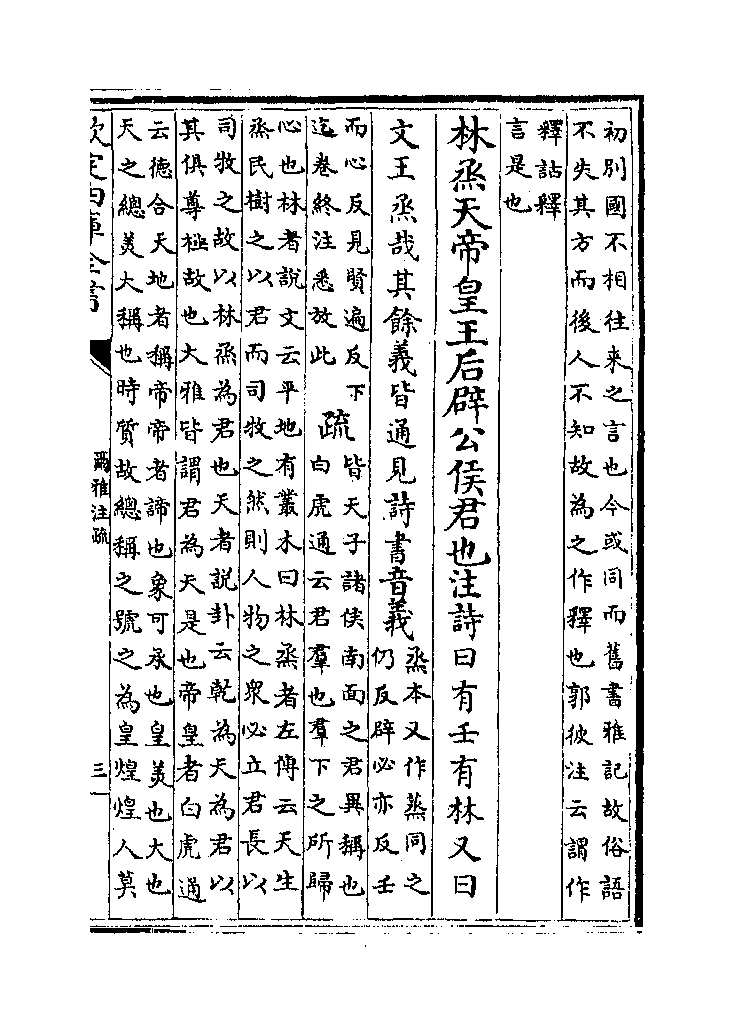 初別國不相徃来之言也今或同而舊書雅記故俗語
不失其方而後人不知故為之作釋也郭彼注云謂作
釋詁釋
言是也
林烝天帝皇王后辟公侯君也注詩曰有壬有林又曰
文王烝哉其餘義皆通見詩書音義烝本又作蒸同之
仍反辟必亦反壬
而心反見賢遍反下
迄卷終注悉放此
疏皆天子諸侯南面之君異稱也
白虎通云君羣也羣下之所歸
心也林者説文云平地有叢木曰林烝者左傳云天生
烝民樹之以君而司牧之然則人物之衆必立君長以
司牧之故以林烝為君也天者説卦云乾為天為君以
其俱尊極故也大雅皆謂君為天是也帝皇者白虎通
云德合天地者稱帝帝者諦也象可承也皇美也大也
天之總美大稱也時質故總稱之號之為皇煌煌人莫
欽定四庫全書
爾雅注疏
三